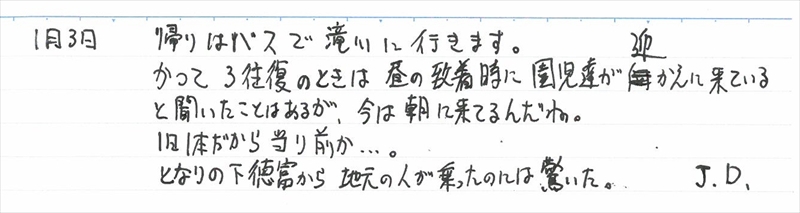 1月3日 帰りはバスで滝川に行きます。
かつて3往復のときは昼の到着時に園児達が迎かえに来ている
と聞いたことはあるが、今は朝に来てるんだね。
1日1本だから当り前か…。
となりの下徳富から地元の人が乗ったのには驚いた。 J.D.